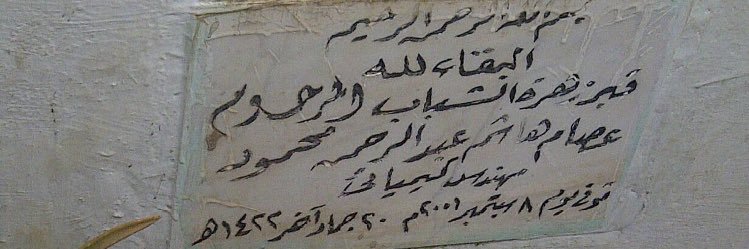 بسم الله الرحمن الرحيم
البقاء لله
قبر زهرة الشباب المرحوم
عصام هاشم عبد الرحمن محمود
مهندس كيميائى
توفى يوم ٨ سبتمبر ٢٠٠١م ٢٠ جماد آخر ١٤٢٢ھ